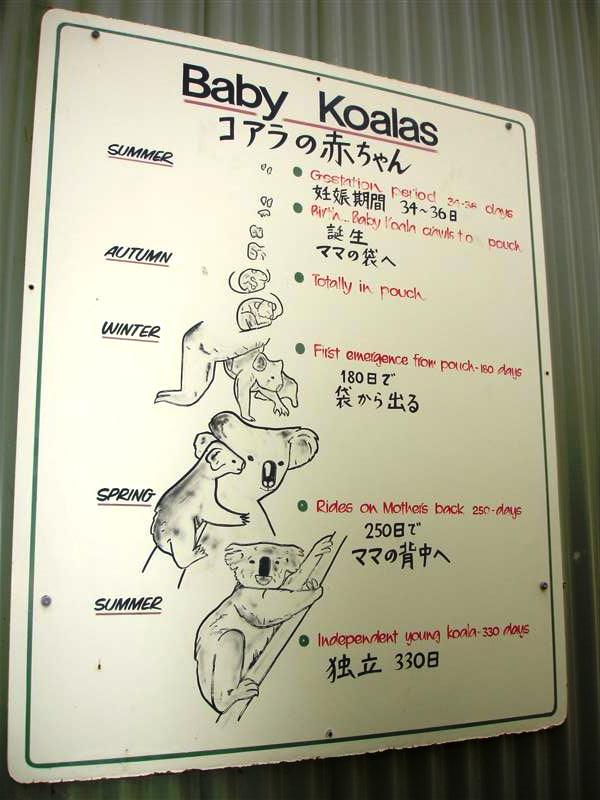 Baby Koalas
コアラの赤ちゃん
SUMMER
Gestation period 34-36 days
妊娠期間 34~36日
Birth... Baby Koala crawls to pouch
誕生
ママの袋へ
AUTUMN
Totally in pouch
WINTER
First emergence from pouch-180 days
180日で
袋から出る
SPRING
Rides on Mothers back 250-days
250日で
ママの背中へ
SUMMER
Independent young koala-330 days
独立 330日